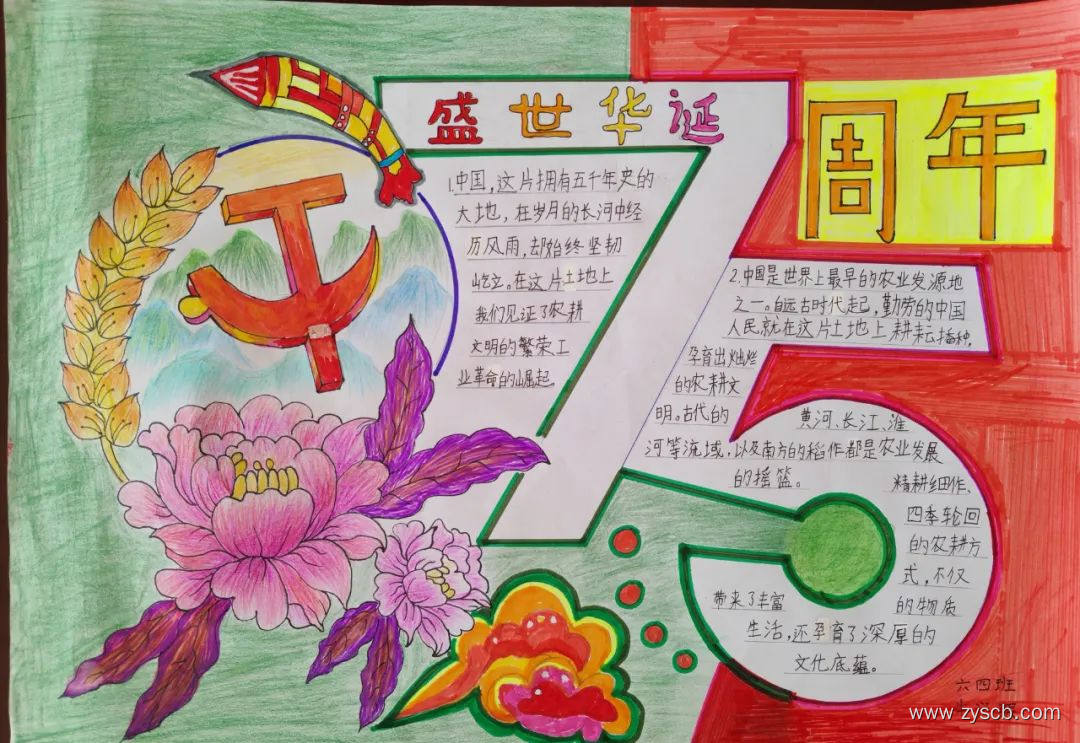 盛世华诞
75
周年
1.中国，这片拥有五千年史的
大地，在岁月的长河中经
历风雨，却始终坚韧
屹立。在这片土地上
我们见证了农耕
文明的繁荣工
业革命的崛起。
2.中国是世界上最早的农业发源地
之一。自远古时代起，勤劳的中国
人民就在这片土地上耕耘播种，
孕育出灿烂
的农耕文
明。古代的
黄河、长江、淮
河等流域，以及南方的稻作都是农业发展
的摇篮。
精耕细作、
四季轮回
的农耕方
式，不仅
带来了丰富
的物质
生活，还孕育了深厚的
文化底蕴。
六四班
www.zyscb.com